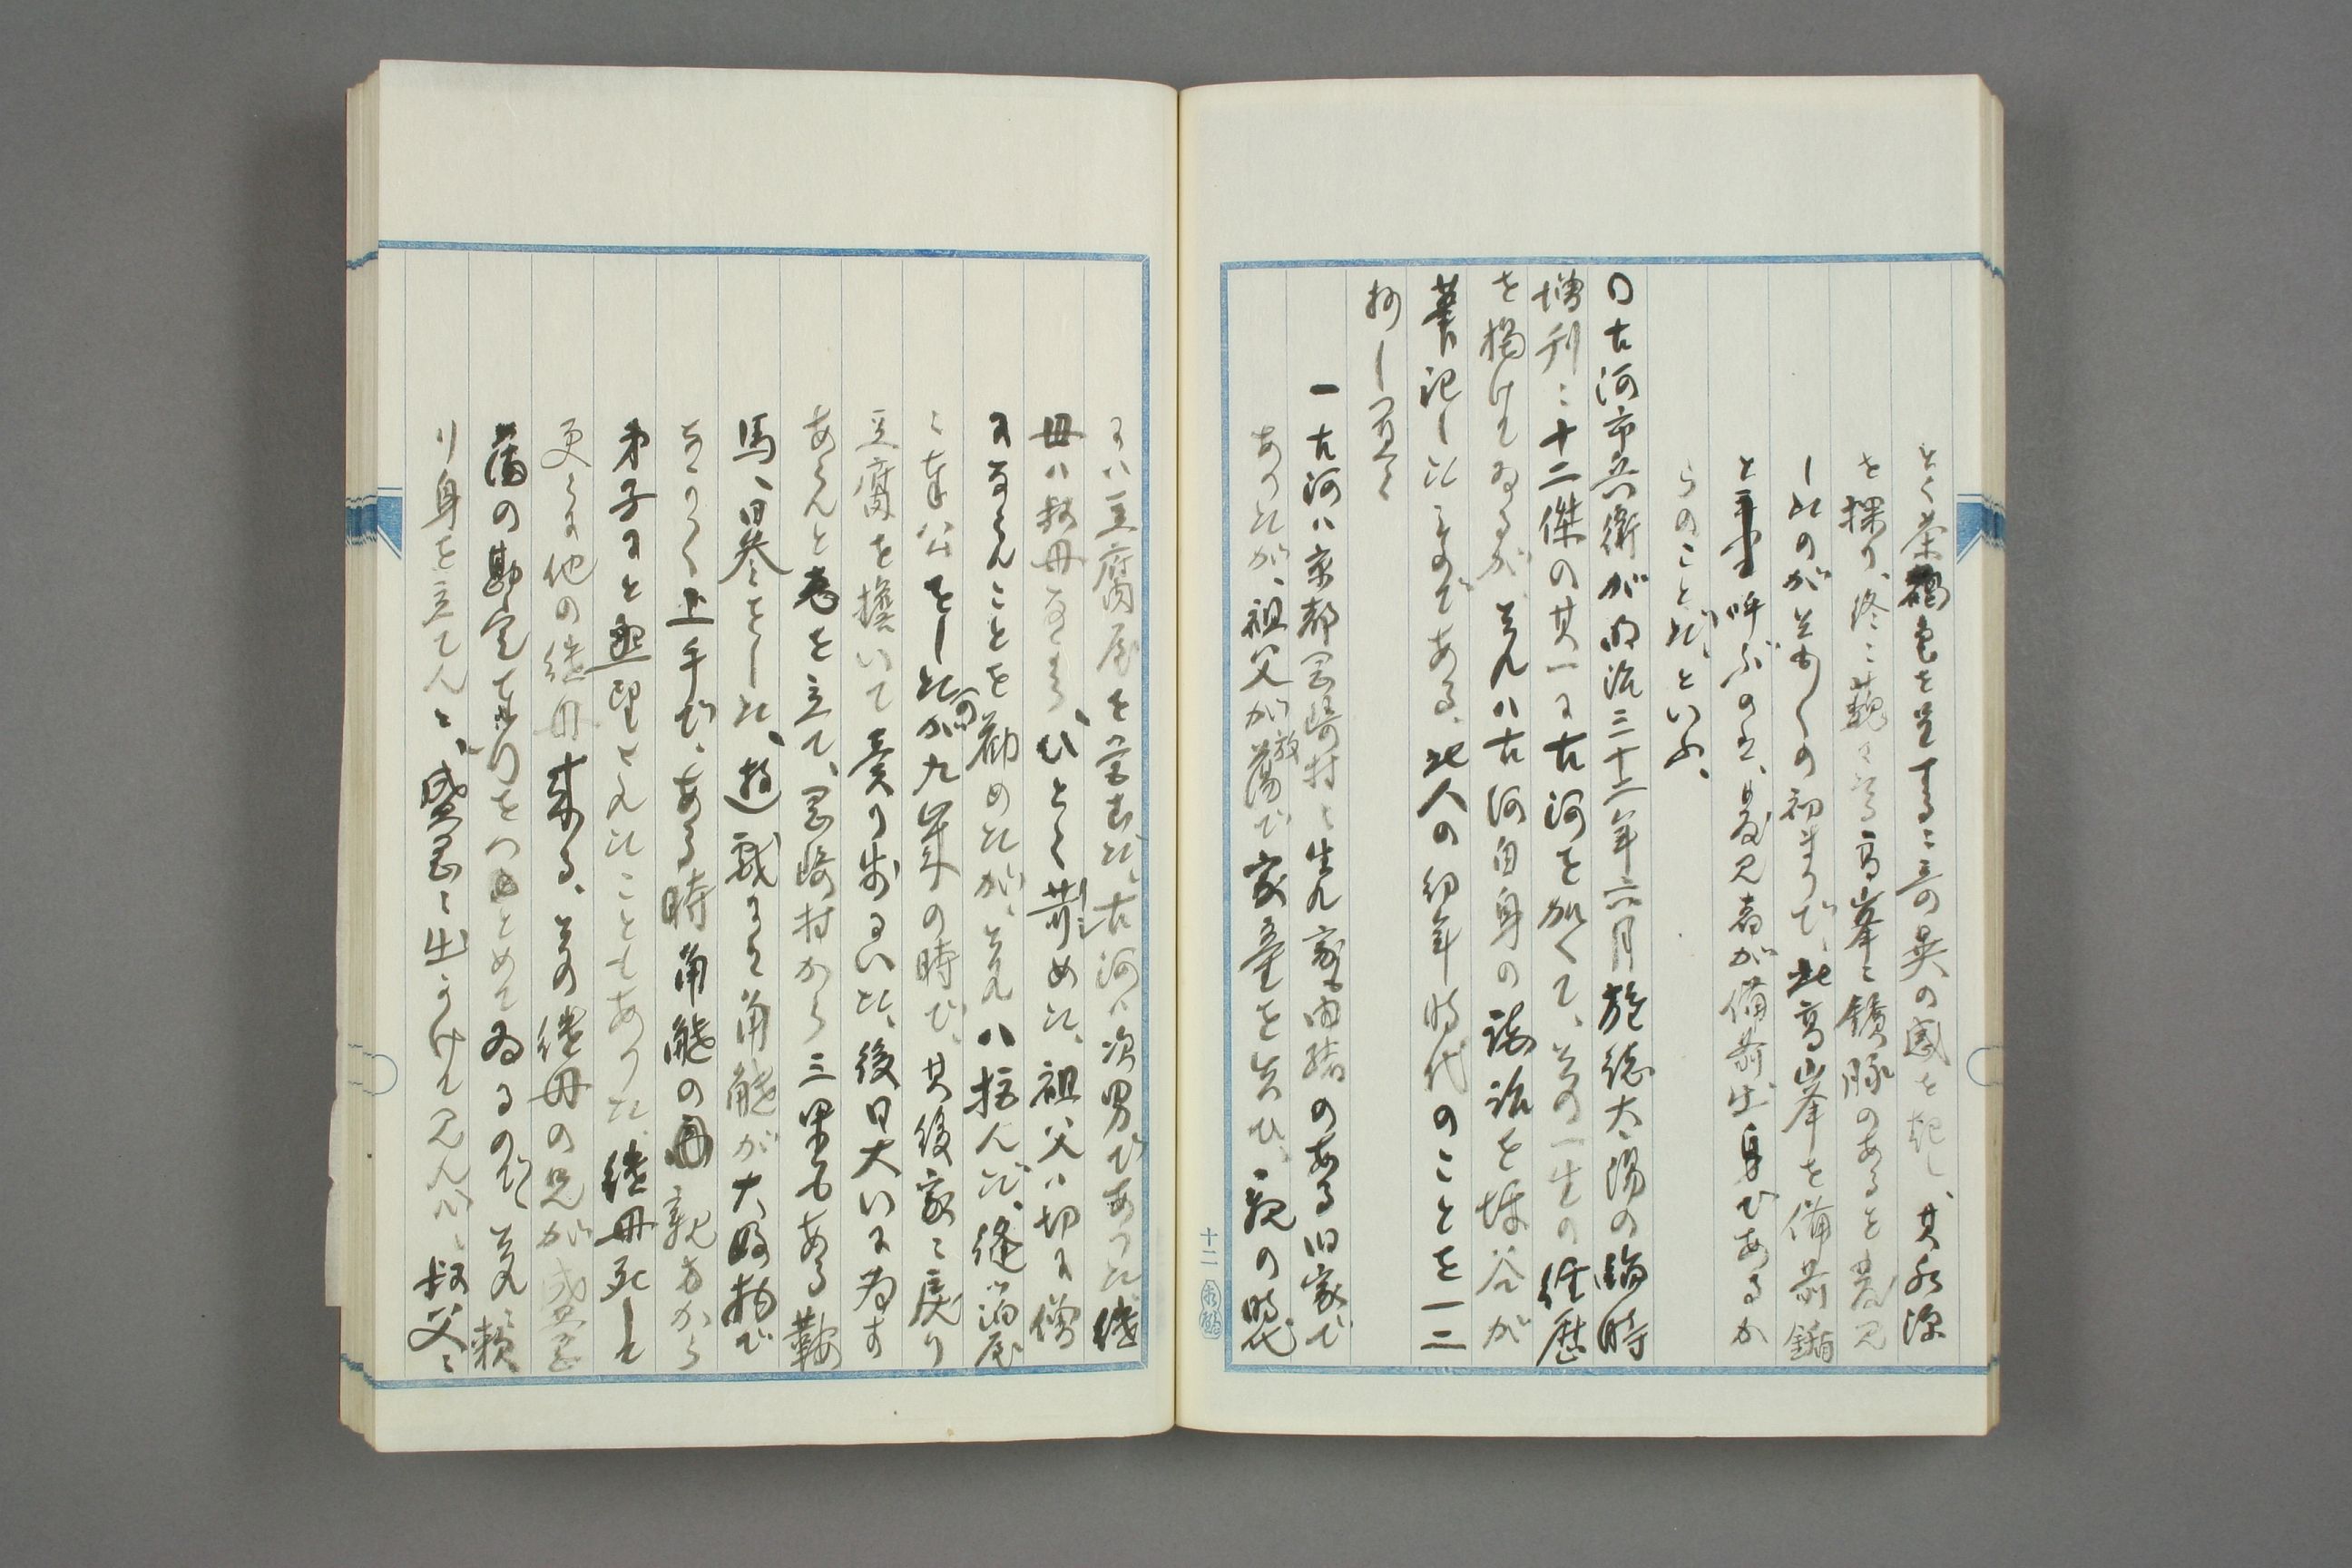 とく茶褐色を呈するに三の異の感を起し、其水源
を探り、終に高峯に鑛脈のあるを発見
しれのがそも〱の初まりで、此高峯を備前鋪
と呼ぶのは、発見者が備前出身であるか
らのことだといふ、
〇古河市兵衛が明治三十二年六月発兌太陽の臨時
増刊に十二傑の其一に古河を加へて、其の一生の経歴
を掲げてゐるが、それハ古河自身の談話を坪谷が
筆記しれものである、此人の幼年時代のことを一二
抄し置く
一古河ハ京都岡崎村に生れ家も由緒のある旧家で
あつれが、祖父が放蕩で家産を失ひ、親の時代
にハ豆腐屋を営むれ、古河ハ次男であつれ、継
母ハ叔母なるも、ひとく苛めれ、祖父ハ切に僧
になることを勧めれが、それハ拒んだ、
に奉公をしれのが九年の時で、其後家に戻り
豆腐を担いて売り歩るいれ、後日大いに為す
あらんと志を立て、岡崎村から三里もある鞍
馬へ日参をしれ、遊戯にて角觝が大好物で
なか〱上手だ、ある時角觝の親方から
弟子にと懇望されれこともありれ、継母死して
更らに他の継母来る、其の継母の兄が盛岡
藩の勘定をつとめてゐるので、それに頼
り身を立てんと、盛岡に出かけて見れが、叔父に
十二